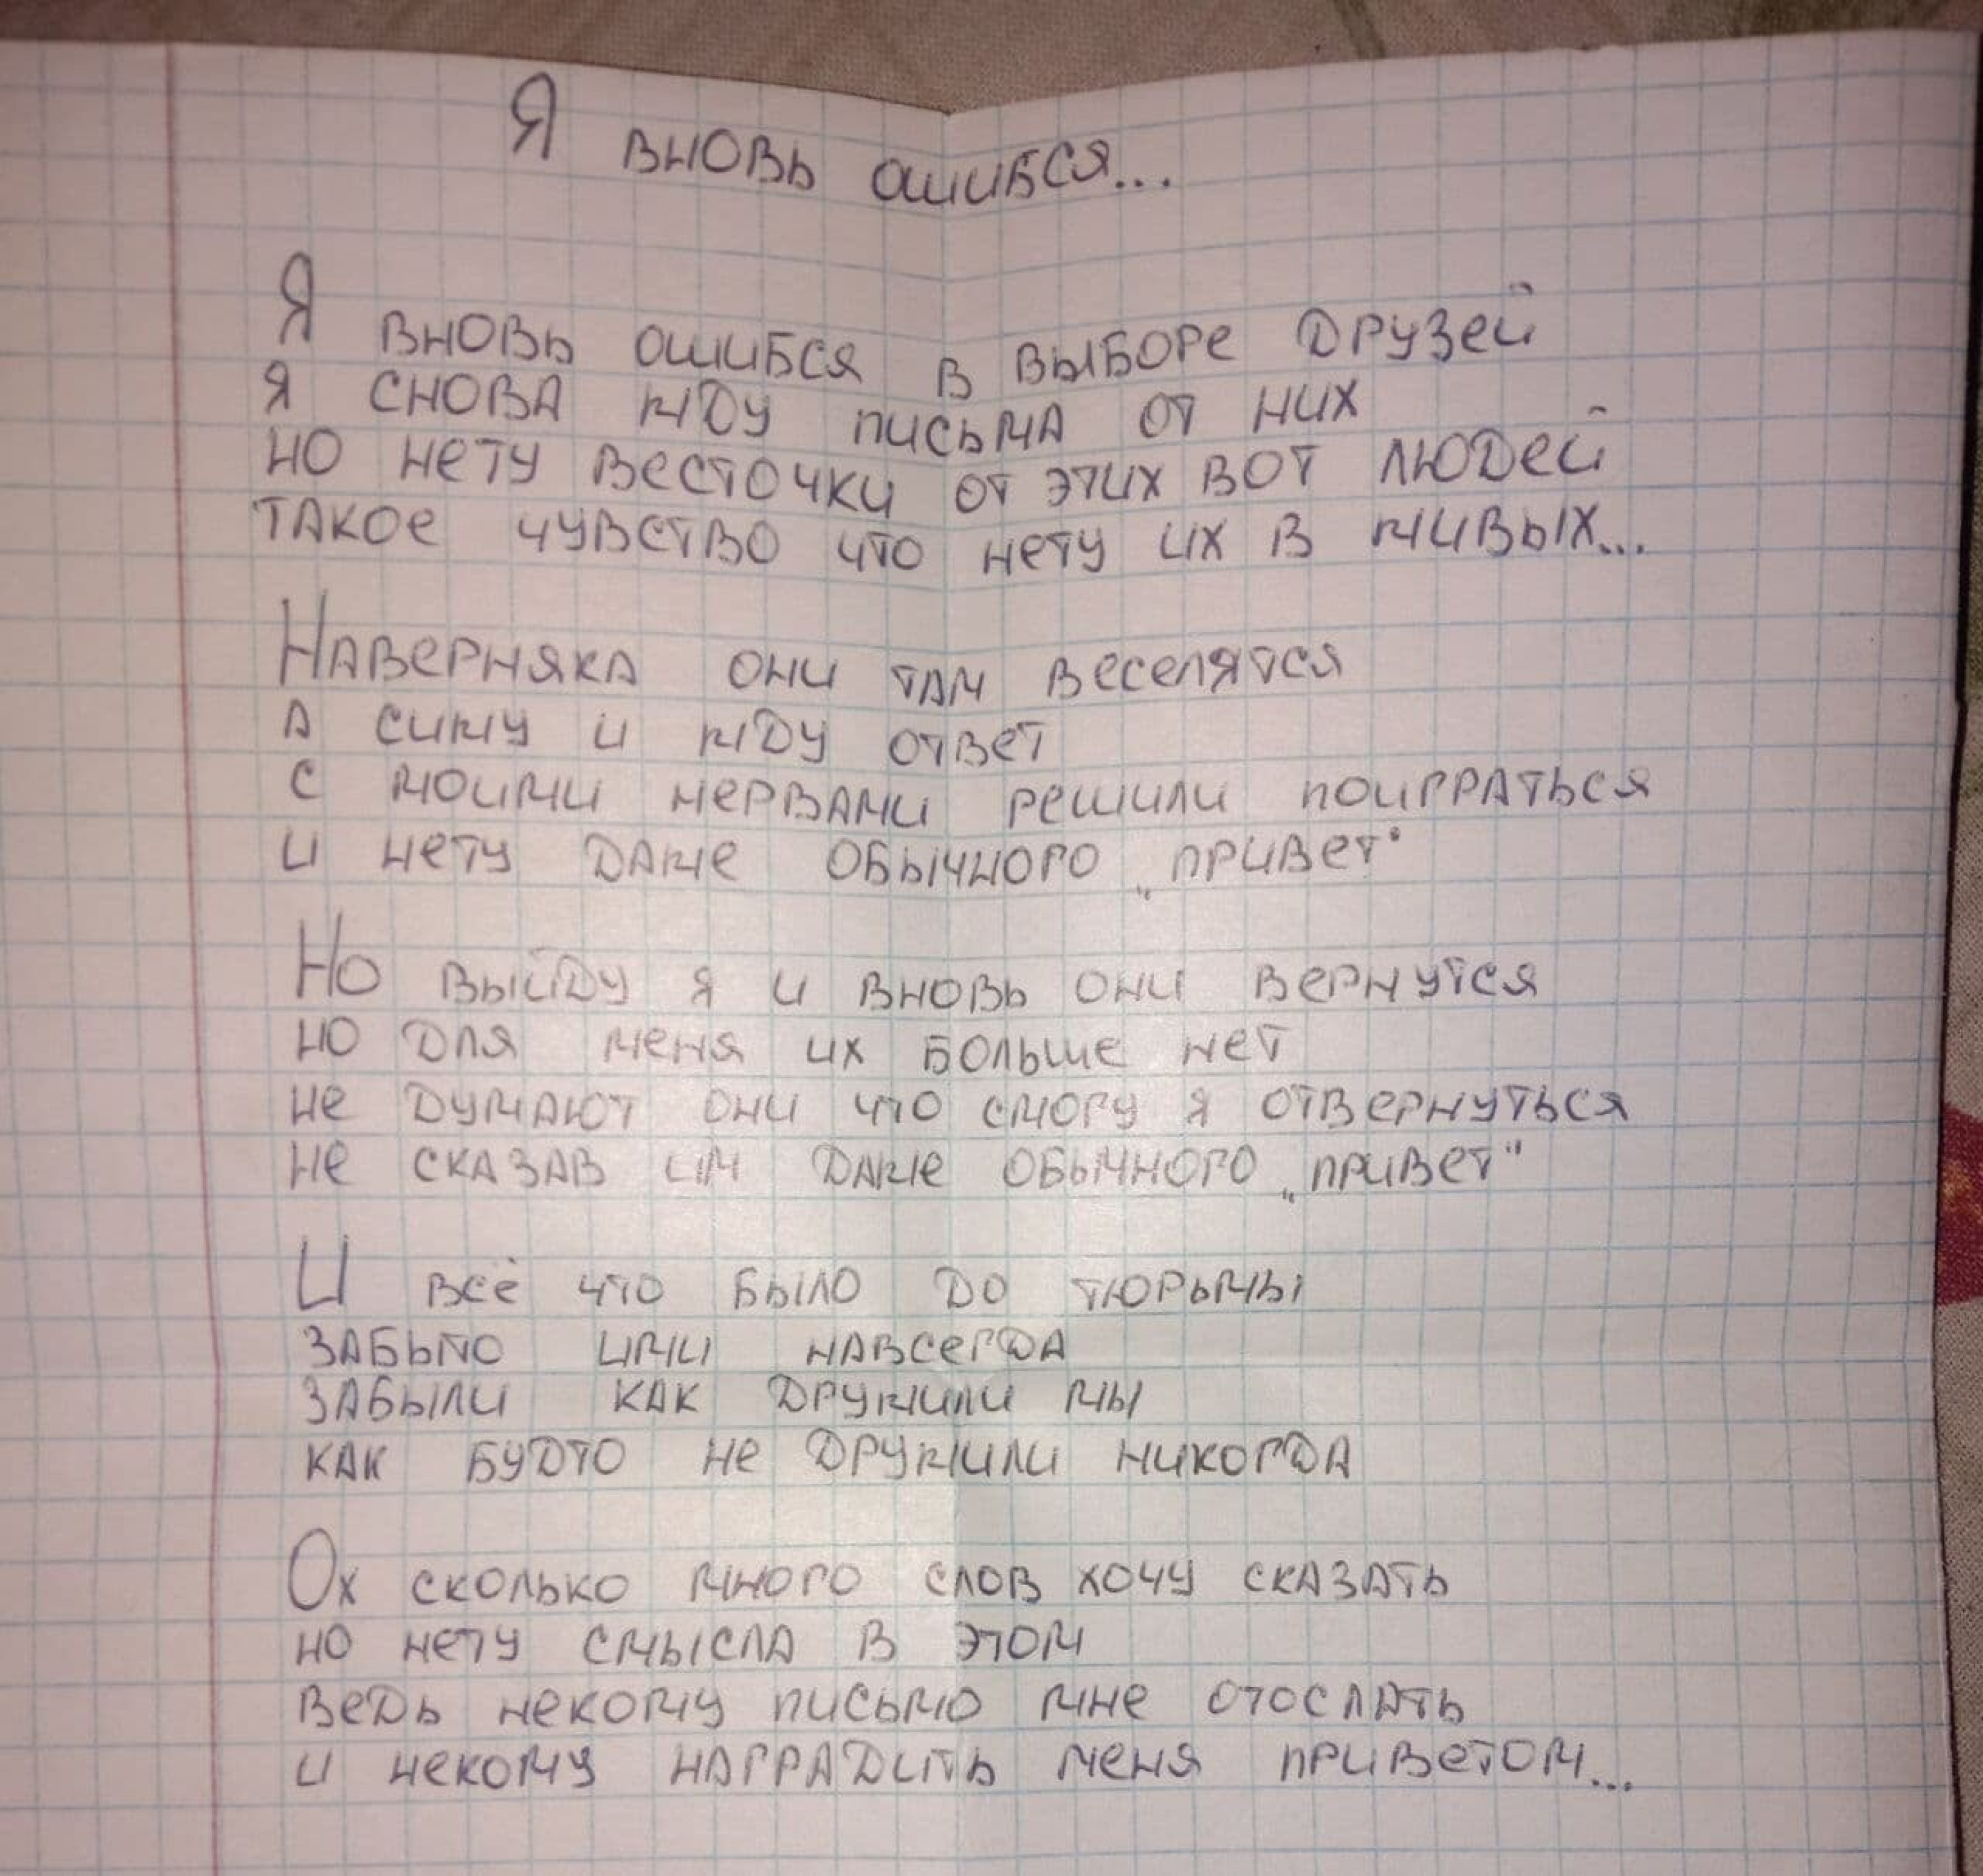 Я вновь ошибся...
Я вновь ошибся в выборе друзей
я снова жду письма от них
но нету весточки от этих вот людей
такое чувство что нету их в живых...
Наверняка они там веселятся
а сижу и жду ответ
с моими нервами решили поиграться
и нету даже обычного „привет"
Но выйду я и вновь они вернутся
но для меня их больше нет
не думают они что смогу я отвернуться
не сказав им даже обычного „привет"
И всё что было до тюрьмы
забыто ими навсегда
забыли как дружили мы
как будто не дружили никогда
Ох сколько много слов хочу сказать
но нету смысла в этом
ведь некому письмо мне отослать
и некому наградить меня приветом...